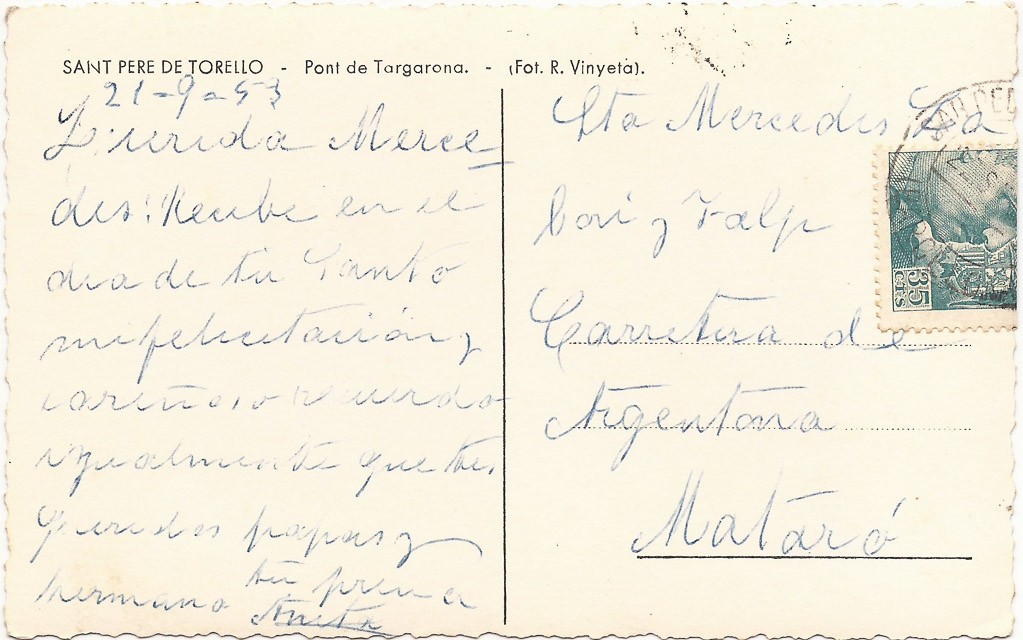 SANT PERE DE TORELLO - Pont de Targarona. - (Fot. R. Vinyeta).
21-9-53
Querida Merce
des: Recibe en el
dia de tu Santo
mi felicitación y
cariñoso recuerdo
igualmente que tus
queridos papas y
hermano tu prima
Anita
Sta Mercedes
y
Carretera de
Argentona
Mataró
35
CTS